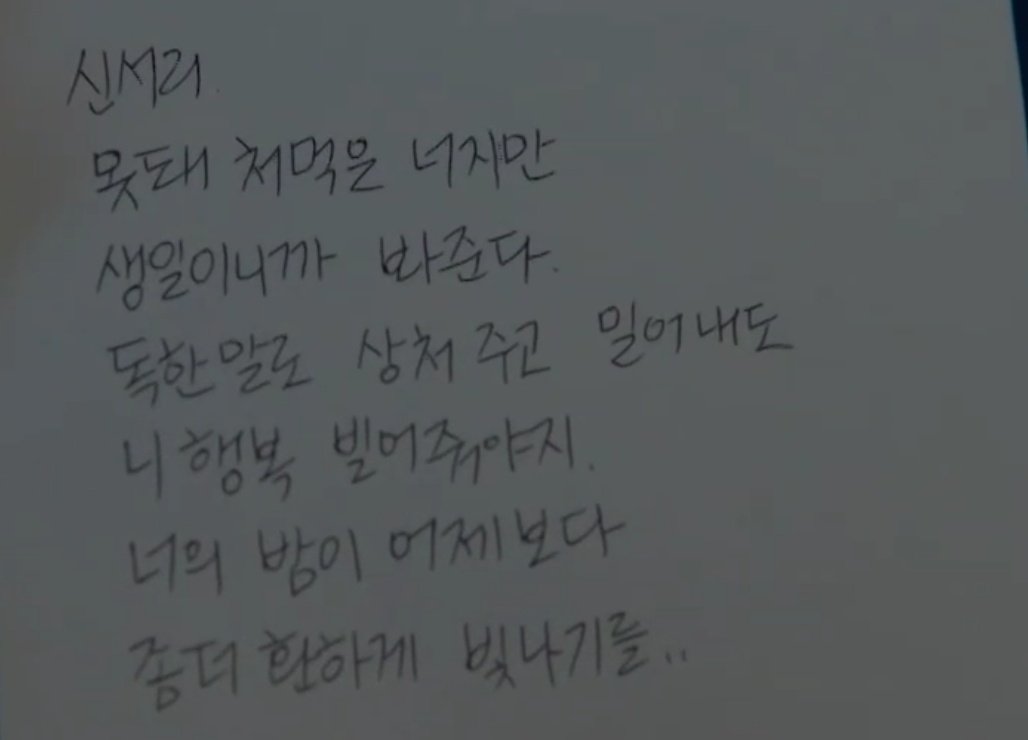 신서리
못돼 처먹은 너지만
생일이니까 봐준다.
독한말로 상처 주고 밀어내도
니 행복 빌어줘야지.
너의 밤이 어제보다
좀더 환하게 빛나기를..